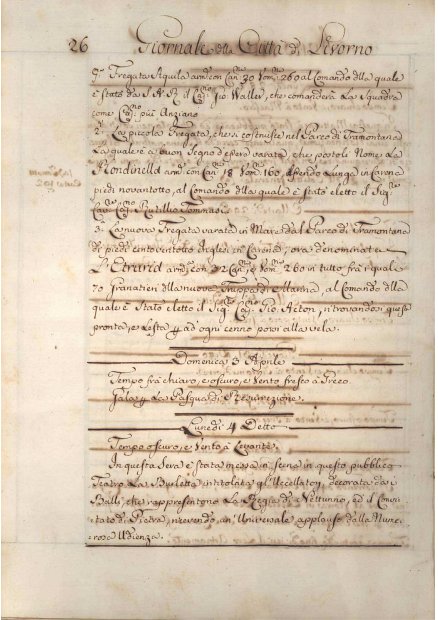 26 Giornale di Città di Livorno
P.ª Fregata Aquila arm. con Can.ⁱ 30 Uom. 260 al Comando dlla quale
è stato da S. A. R. il Cap. Gio Waller, che comanderà la Squadra
come Cap.ⁿᵒ più Anziano
2.ª La piccola Fregata, che si costruisce nel Parco di Tramontana
la quale è a buon segno d'essere varata, che portoli Nome La
Rondinella arm. con Can.ⁱ 18 Uom. 160, essendo Lunga in Carena
piedi novantotto, al Comando dlla quale è stato eletto il Sig.ʳ
Cav. Cap. Rutilio Tommasi
3.ª La nuova Fregata varata in Mare dal Parco di Tramontana
di piedi centoventotto Inglesi in Carena, ora denominata
L'Etruria arm. con 32 Can.ⁱ, e Uom. 260 in tutto fra i quale
70 Granatieri dlla nuova Truppa di Marina, al Comando dlla
quale è stato eletto il Sig.ʳ Cap. Gio Acton, ritrovandosi queste
pronta, e lesta p ad ogni cenno porsi alla vela.
Domenica 3 Aprile
Tempo frà chiaro, e oscuro, e Vento fresco à Greco
Gala p La Pasqua di Resurrezione.
Lunedì 4 Detto
Tempo oscuro, e Vento à Levante.
In questa Sera è stata messa in scena in questo pubblico
Teatro La Burletta intitolata gl'Uccellatori, decorata da i
Balli, che rappresentono La Reggia di Nettunno, ed il Convi-
tato di Pietra, ricevendo un'Universale applauso dalla Nume-
rosa Udienza.